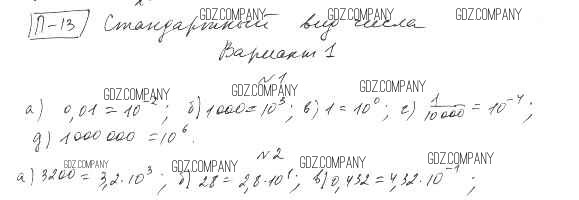 П-13 Стандартный вид числа
GDZ.COMPANY GDZ.COMPANY GDZ.COMPANY
Вариант 1
№1
GDZ.COMPANY GDZ.COMPANY GDZ.COMPANY
а) 0,01 = 10⁻²; б) 1000 = 10³; в) 1 = 10⁰; г) 1/10000 = 10⁻⁴;
д) 1000 000 = 10⁶.
№2
GDZ.COMPANY GDZ.COMPANY GDZ.COMPANY GDZ.COMPANY
а) 3200 = 3,2·10³; б) 28 = 2,8·10¹; в) 0,432 = 4,32·10⁻¹;